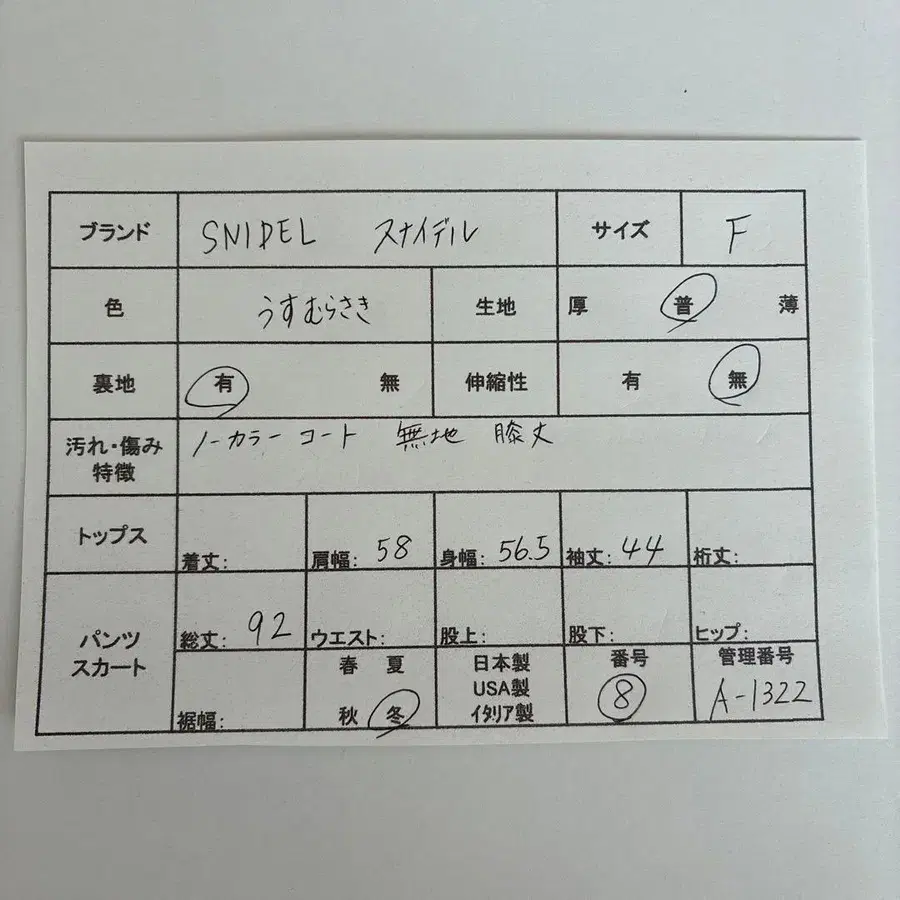 ブランド SNIDEL スナイデル サイズ F
色 うすむらさき 生地 厚 普 薄
裏地 有 無 伸縮性 有 無
汚れ・傷み ノーカラーコート 無地 膝丈
特徴
トップス 着丈: 肩幅: 58 身幅: 56.5 袖丈: 44 裄丈:
パンツ 総丈: 92 ウエスト: 股上: 股下: ヒップ:
スカート 春 夏 日本製 番号 管理番号
USA製 8 A-1322
裾幅: 秋 冬 イタリア製